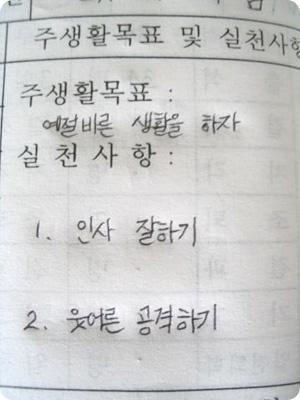 주생활목표 및 실천사항
주생활목표 :
예절바른 생활을 하자
실천사항 :
1. 인사 잘하기
2. 웃어른 공격하기